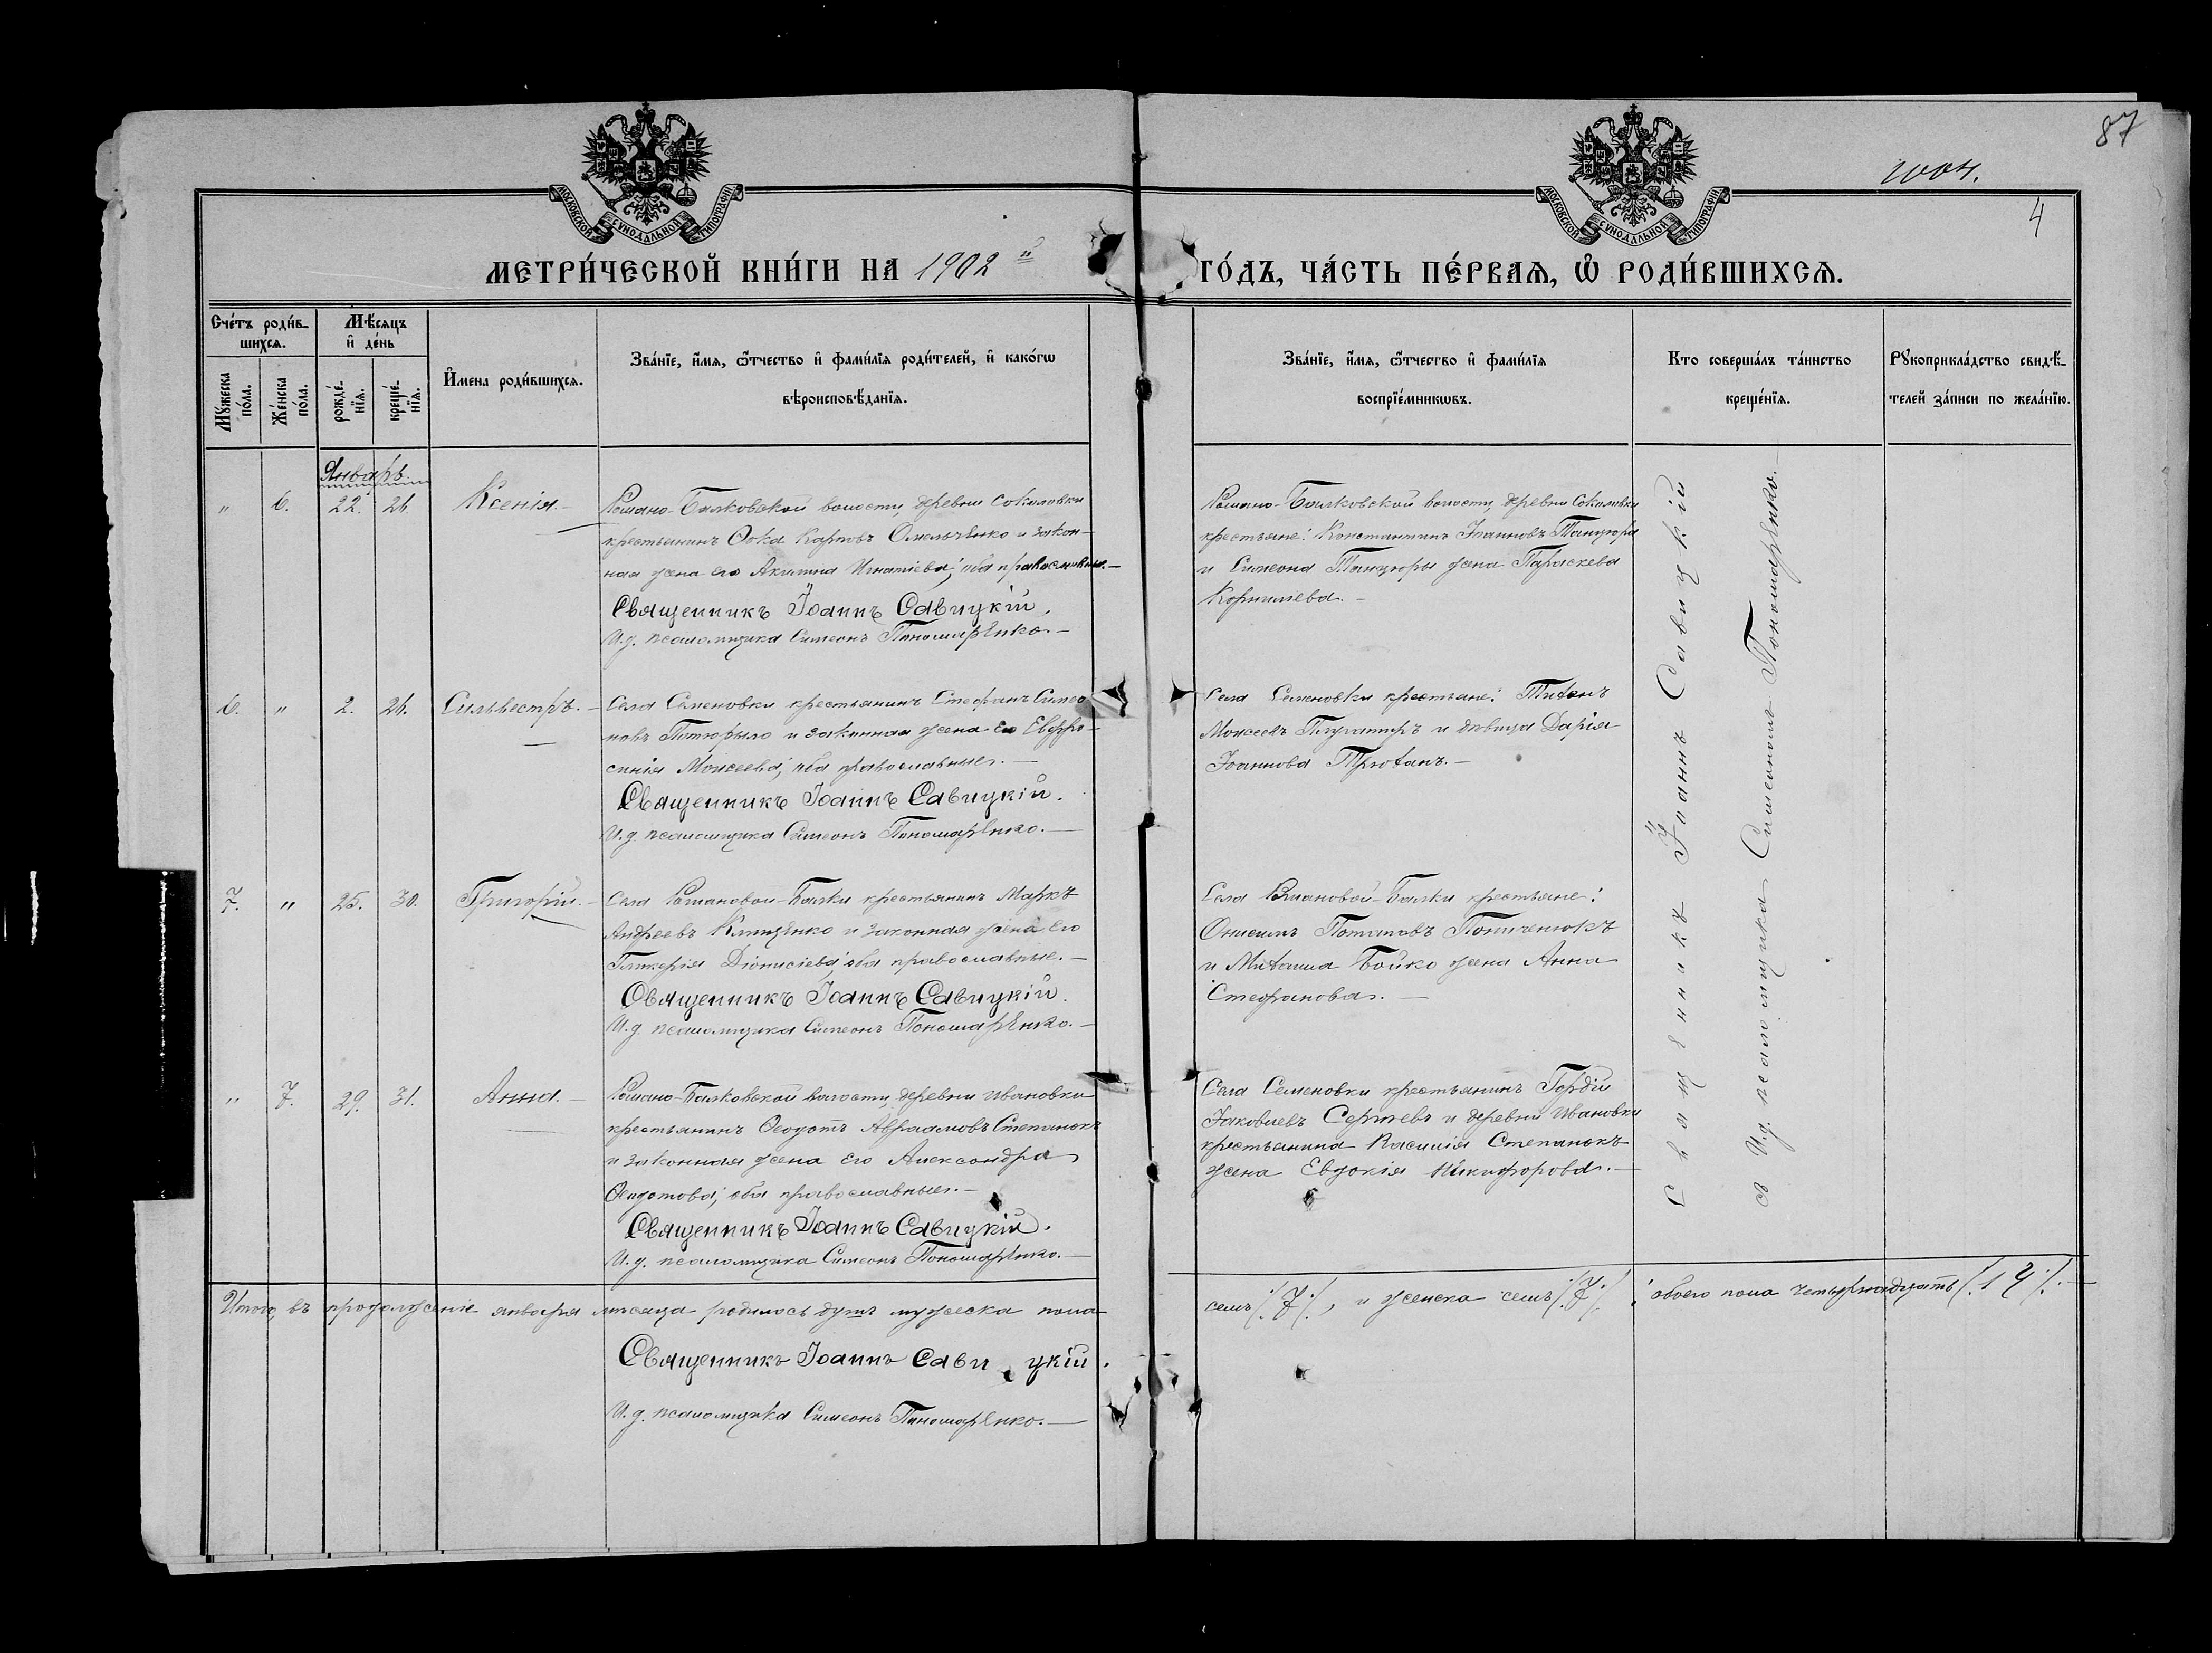 87
1004.
4
МОСКОВСКОЙ СУНОДАЛЬНОЙ ТИПОГРАФІИ
МОСКОВСКОЙ СУНОДАЛЬНОЙ ТИПОГРАФІИ
МЕТРИ́ЧЕСКОЙ КНИ́ГИ НА 1902 й
ГО́ДЪ, ЧА́СТЬ ПЕ́РВАЯ, Ѡ РОДИ́ВШИХСЯ.
Сче́тъ роди́в-
шихся.
Мꙋ́жеска по́ла.
Же́нска по́ла.
Мѣ́сяцъ и҆ де́нь
рожде́-
нїя.
креще́-
нїя.
И҆мена роди́вшихся.
Зва́нїе, и҆́мя, ѻ҆́тчество и҆ фами́лїя роди́телей, и҆ како́гѡ
вѣроисповѣ́данїя.
Зва́нїе, и҆́мя, ѻ҆́тчество и҆ фами́лїя
воспрїе́мникѡвъ.
Кто соверша́лъ та́инство
креще́нїя.
Рꙋкоприкла́дство свидѣ́-
телей за́писи по жела́нїю.
Январь.
" 6. 22. 26. Ксенія.-
Романо-Балковской волости, деревни Соколовки
крестьянинъ Ѳока Карповъ Омельченко и закон-
ная жена его Акилина Игнатіева, оба православные.-
Священникъ Іоаннъ Савицкій.
И.д. псаломщика Симеонъ Пономаренко.-
Романо-Балковской волости, деревни Соколовки
крестьяне: Константинъ Іоанновъ Танцюра
и Симеона Танцюры жена Параскева
Корнилева.-
6. " 2. 26. Сильвестръ.-
Села Семеновки крестьянинъ Стефанъ Симео-
новъ и законная жена его Евфро-
синія Моисеева, оба православные.-
Священникъ Іоаннъ Савицкій.
И.д. псаломщика Симеонъ Пономаренко.-
Села Семеновки крестьяне:
Моисеевъ и дѣвица Дарія
Іоаннова
7. " 25. 30. Григорій.-
Села Романовой-Балки крестьянинъ Маркъ
Андреевъ Клищенко и законная жена его
Гликерія Діонисіева, оба православные.-
Священникъ Іоаннъ Савицкій.
И.д. псаломщика Симеонъ Пономаренко.-
Села Романовой-Балки крестьяне:
Онисимъ Потаповъ
и Михаила Бойко жена Анна
Стефанова.-
" 7. 29. 31. Анна.-
Романо-Балковской волости, деревни Ивановки
крестьянинъ Ѳеодотъ Авраамовъ Степанюкъ
и законная жена его Александра
Ѳеодотова, оба православные.-
Священникъ Іоаннъ Савицкій.
И.д. псаломщика Симеонъ Пономаренко.-
Села Семеновки крестьянинъ Гордій
Іаковлевъ Сергіевъ и деревни Ивановки
крестьянина Василія Степанюкъ
жена Евдокія Никифорова.-
Священникъ Іоаннъ Савицкій
съ И.д. псаломщика Симеономъ Пономаренко.-
Итого, въ продолженіе января мѣсяца родилось душъ мужеска пола
семь /.7./, и женска семь /.7./; обоего пола четырнадцать /.14./.-
Священникъ Іоаннъ Савицкій.
И.д. псаломщика Симеонъ Пономаренко.-